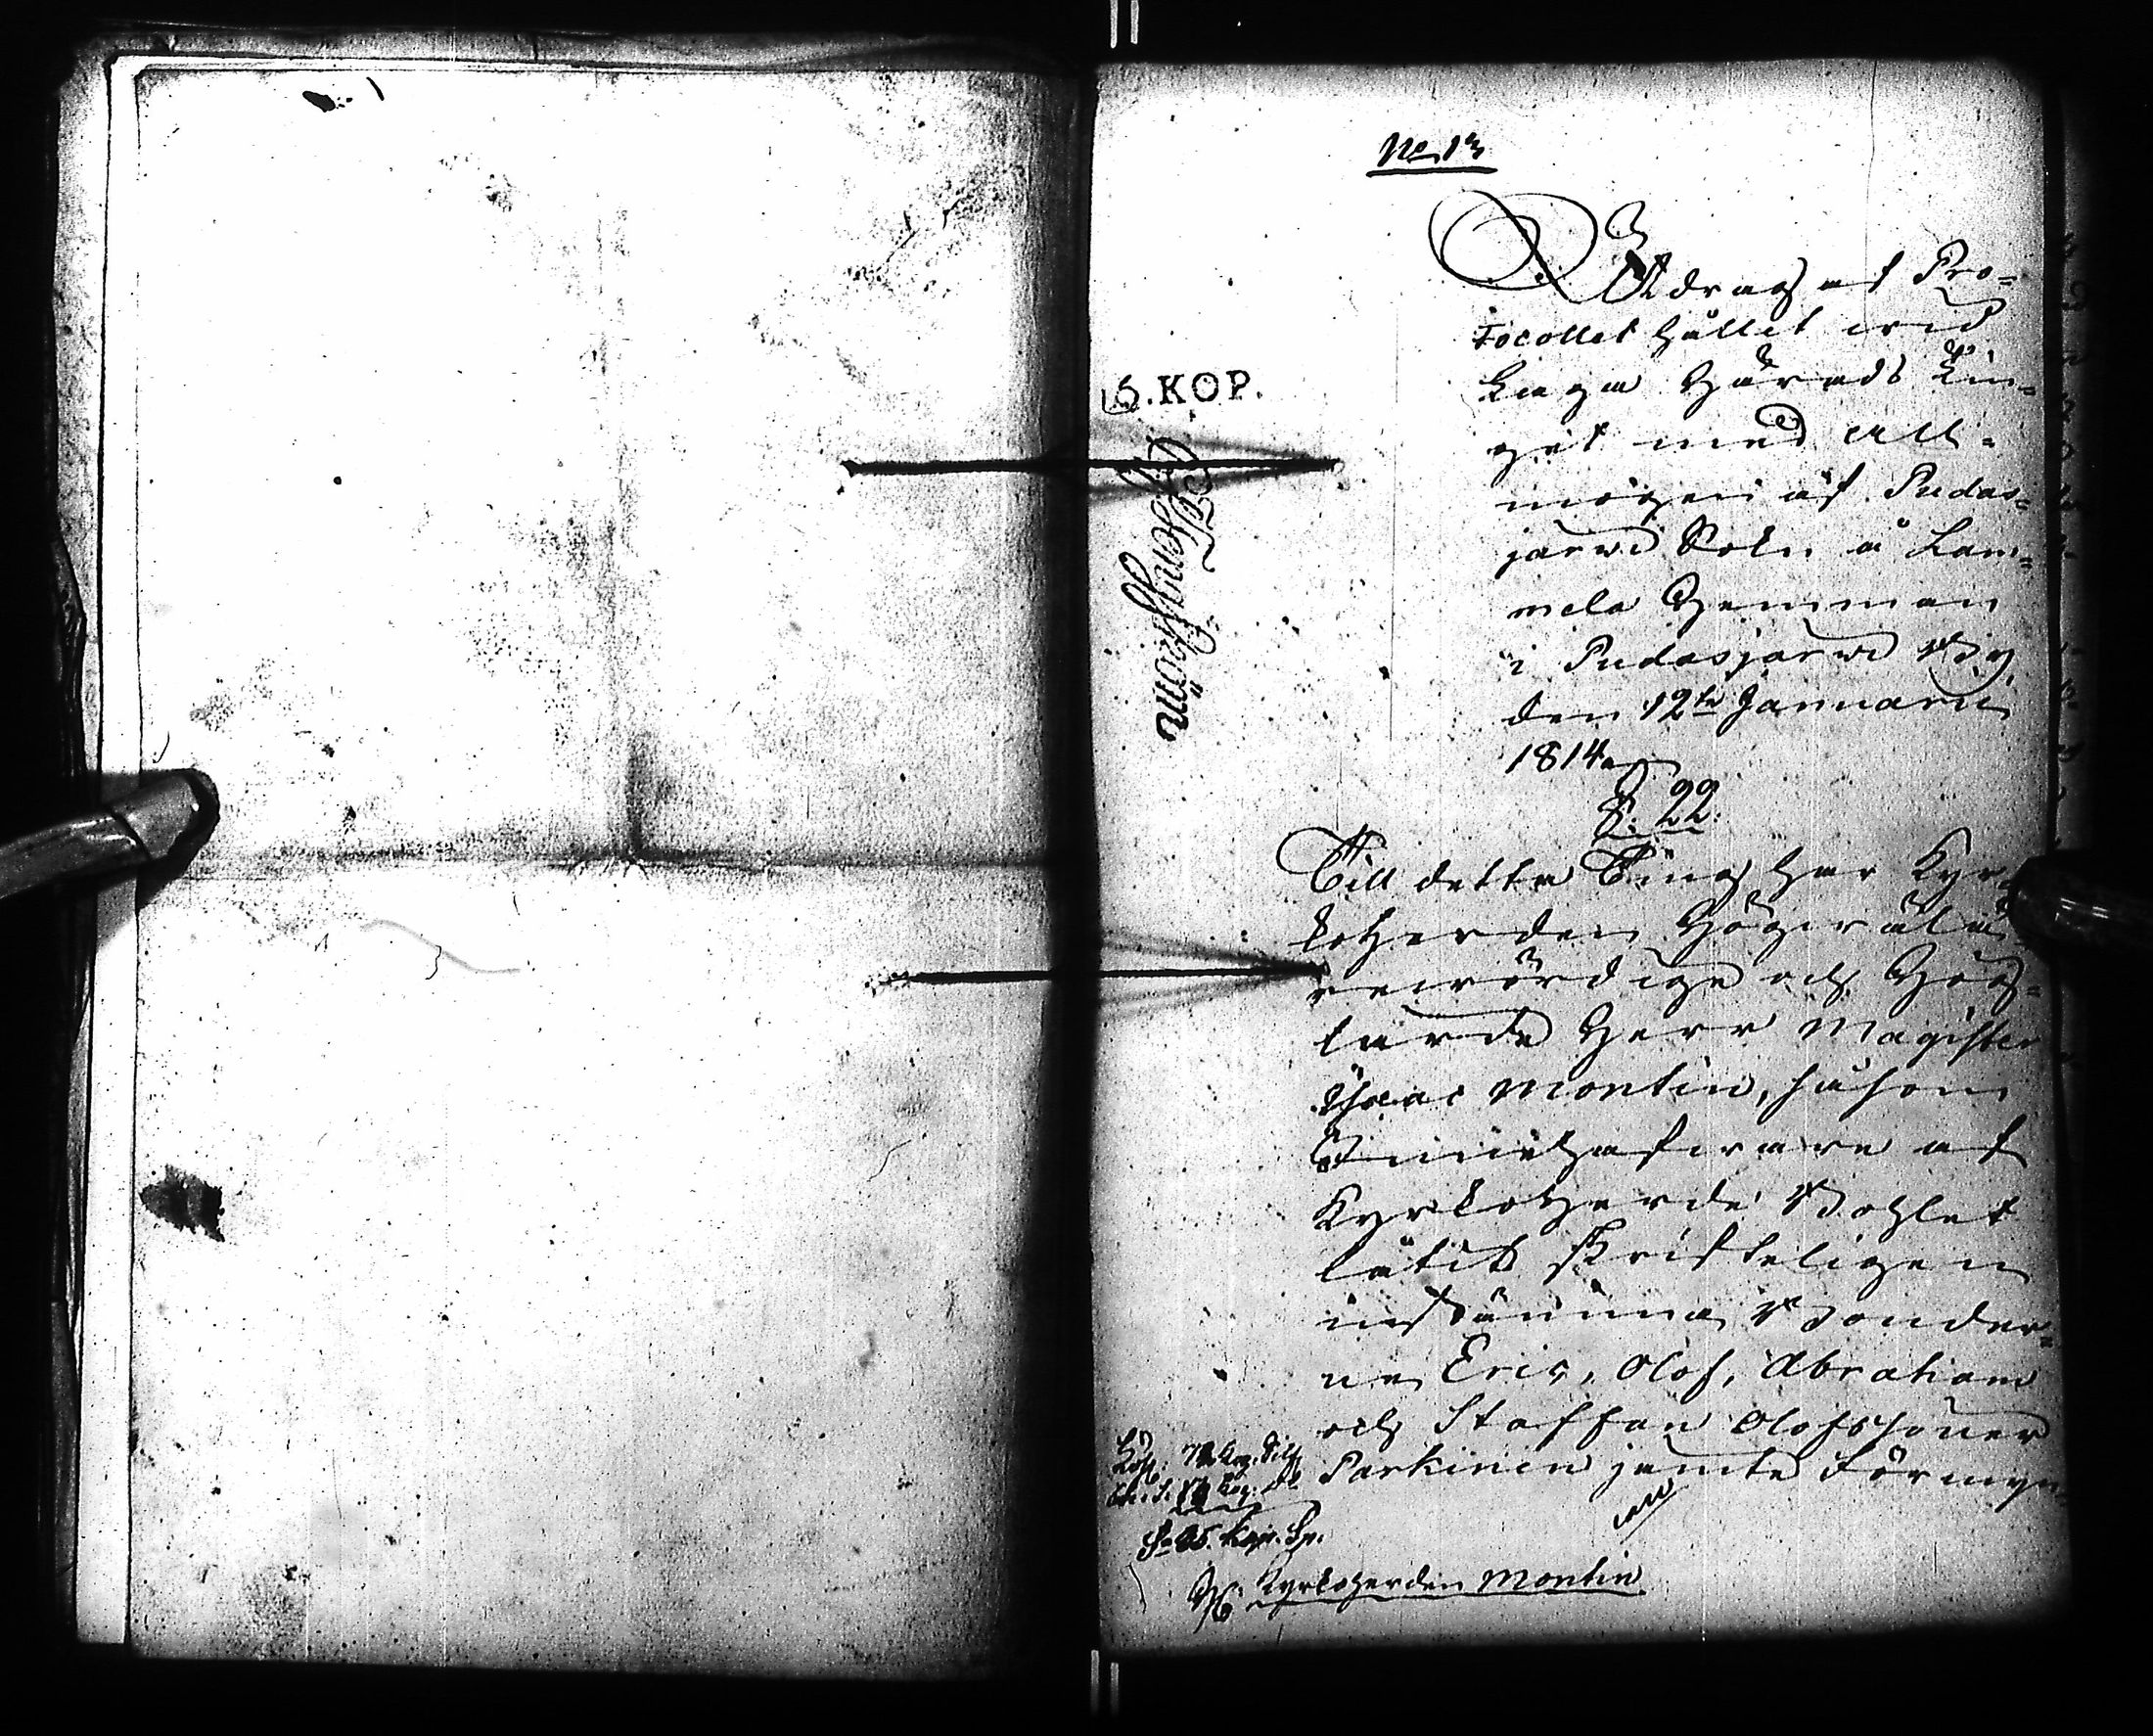 No 13
Utdrag af Pro-
tocollet hållet wid
Laga Härads Tin-
get med All-
mogen af Pudas-
järwi Sokn å Lam-
mela Hemman
i Pudasjärwi By
den 12te Januarii
1814.
§. 22.
6.KOP.
Till detta Ting har Kyr-
koherden Högvälä-
rewördige och Hög-
lärde Herr Magister
Isaac Montin, såsom
Innehafware af
Kyrkoherde Bohlet
låtit skrifteligen
instämma Bönder-
ne Eric, Olof, Abraham
och Staffan Olofssöner
Parkinen jämte Förmyn-
S:a 85. Kop. Sr.
Kyrkoherden Montin